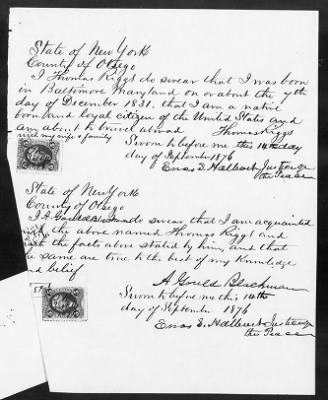 State of New York
County of Otsego
I Thomas Riggs do swear that I was born
in Baltimore Maryland on or about the 7th
day of December 1831. that I am a native
born and loyal citizen of the United States and
am about to travel abroad Thomas Riggs
with my wife & family
Sworn to before me this 14th day
day of September 1876
Enos S. Halbert Justice of
the Peace
State of New York
County of Otsego
I A Gould do swear, that I am acquainted
with the above named Thomas Riggs and
that the facts above stated by him, and that
the same are true to the best of my Knowledge
and belief
A Gould Blackman
Sworn to before me this 14th
day of September 1876
Enos S. Halbert Justice of
the Peace